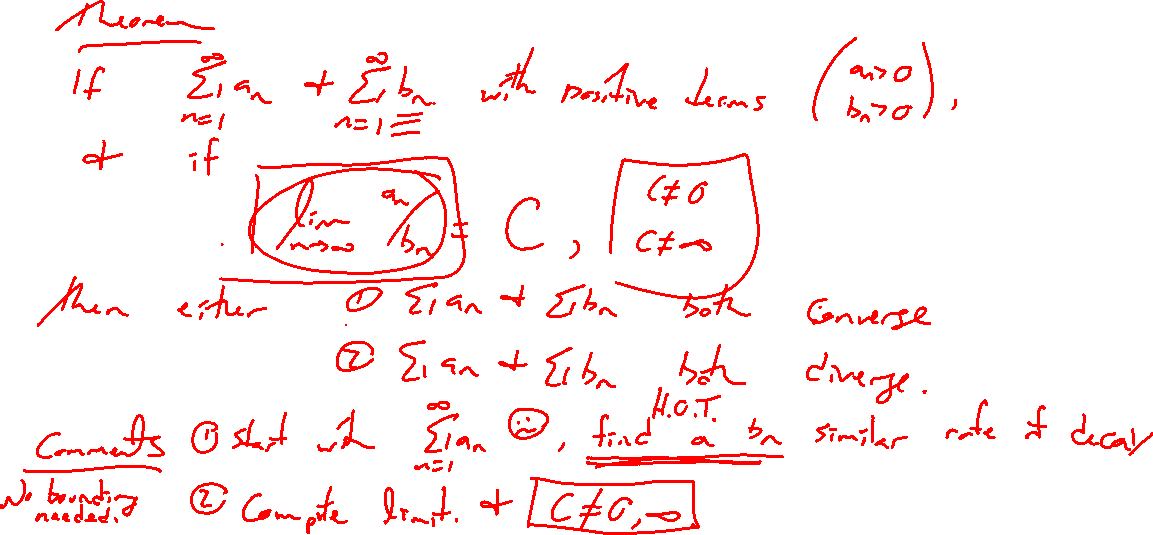 Theorem
If ∑_{n=1}^{∞} a_n + ∑_{n=1}^{∞} b_n with positive terms (a_n>0 b_n>0),
+ if
lim_{n→∞} a_n/b_n = C, C≠0 C≠∞
then either ① ∑ a_n + ∑ b_n both converge
② ∑ a_n + ∑ b_n both diverge.
H.O.T.
Comments ① start with ∑_{n=1}^{∞} a_n ☹, find a b_n similar rate of decay
No bounding needed. ② Compute limit. + C≠0,∞